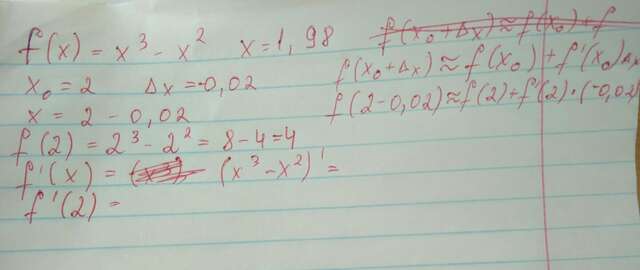 f(x) = x³ - x² x = 1,98
x₀ = 2 Δx = -0,02
x = 2 - 0,02
f(2) = 2³ - 2² = 8 - 4 = 4
f'(x) = (x³ - x²)' =
f'(2) =
f(x₀ + Δx) ≈ f(x₀) + f
f(x₀ + Δx) ≈ f(x₀) + f'(x₀)Δx
f(2 - 0,02) ≈ f(2) + f'(2) · (-0,02)